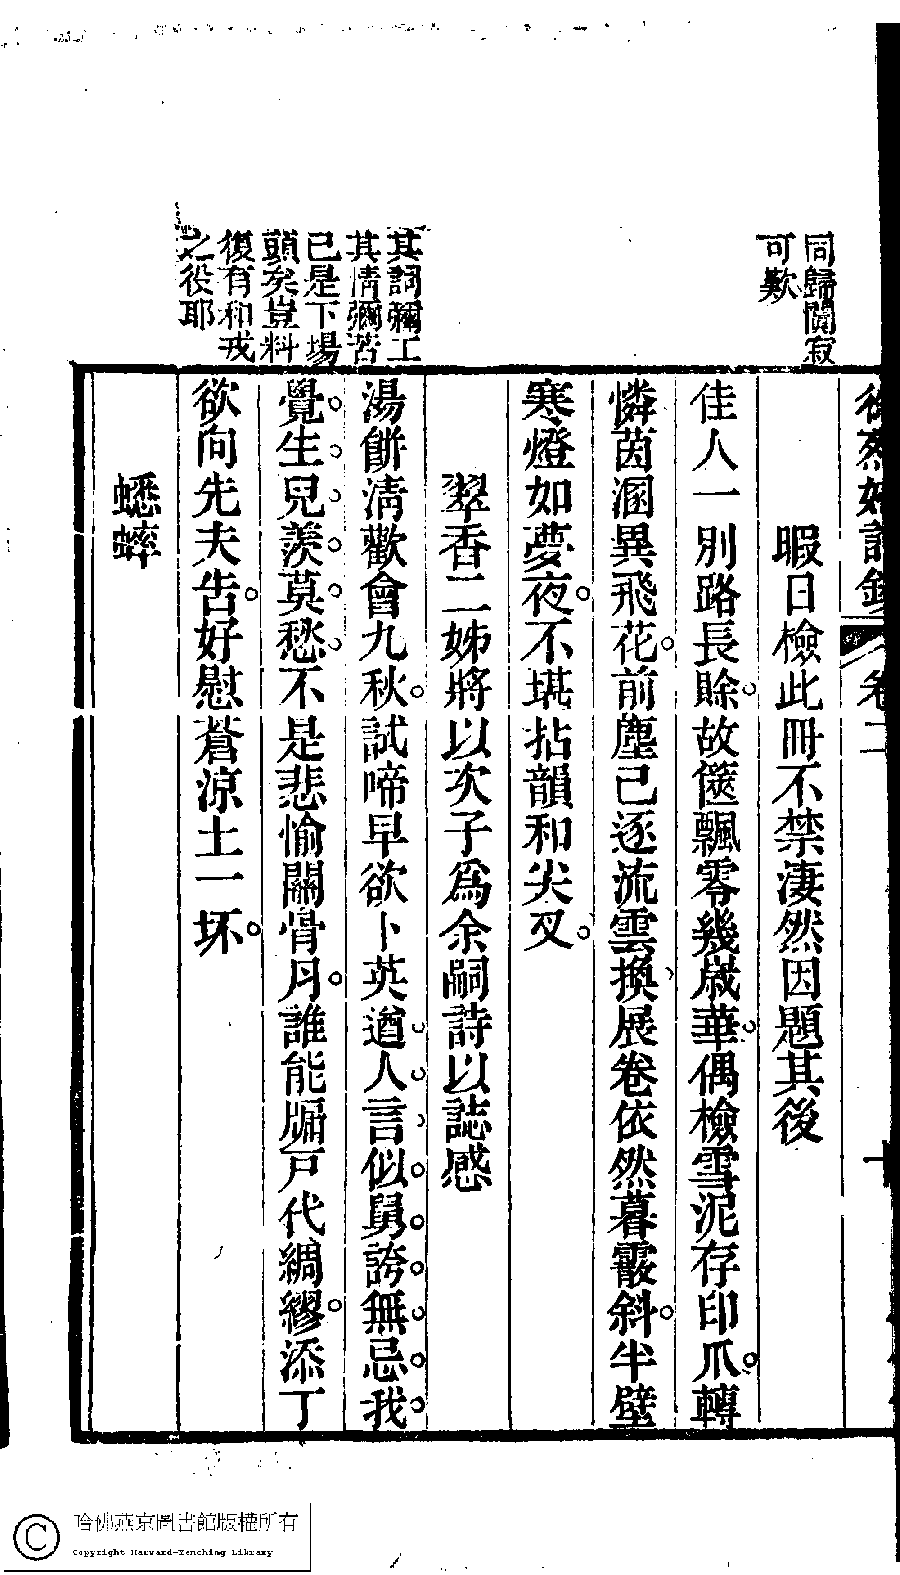 徐烈婦詩鈔 卷二 十
同歸闃寂
可歎
暇日檢此冊不禁淒然因題其後
佳人一別路長賒。故篋飄零幾歲華。偶檢雪泥存印爪。轉
憐茵溷異飛花。前塵已逐流雲換、展卷依然暮靄斜。半壁
寒燈如夢夜。不堪拈韻和尖叉。
翠香二姊將以次子爲余嗣詩以誌感
其詞彌工
其情彌苦
已是下場
頭矣豈料
復有和戎
之役耶
湯餅清歡會九秋。試啼早欲卜英遒、人言似舅誇無忌。我
覺生兒羨莫愁、不是悲愉關骨月。誰能牖戶代綢繆。添丁
欲向先夫告。好慰蒼涼土一坏。
蟋蟀
哈佛燕京圖書館版權所有
Copyright Harvard-Yenching Library